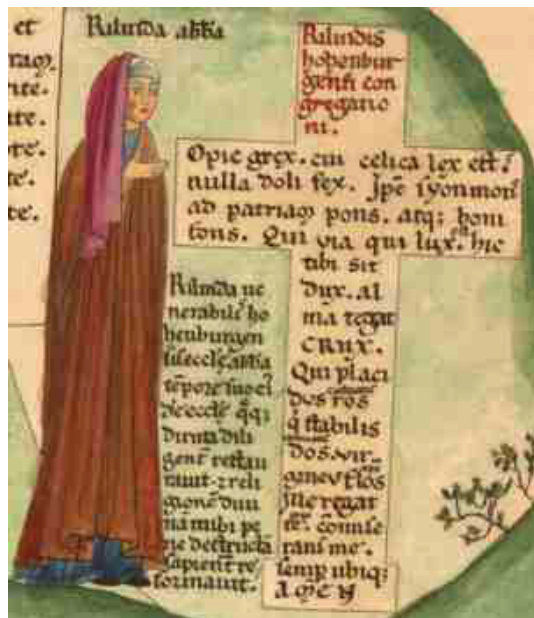 et
Rilinda abb̄a
rite.
te.
te.
te.
Rilindis
hohenbur-
gensi con
gregatio
ni.
O pie grex. cui celica lex est.
nulla doli fex. Ip̄e syon mons
ad patriam pons. atq; boni
fons. Qui via qui lux. hic
tibi sit
dux. al
ma tegat
CRUX.
Qui placi
dos ros
q̄ stabilis
dos. vir-
gineus flos
Ille regat
te. com̄ise
rans me.
semp̄ ubiq;
AMEN
Rilinda ve
nerabilis ho
henburgen
sis eccl̄e abb̄a
tēpore suo ei
dē eccl̄e q̄q;
diruta dili
gent̄ restau
ravit. ⁊ reli
gionē divi
nā inibi pe
ne destructā
sapient̄ re
formavit.